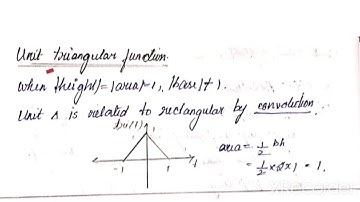 Unit triangular function.
when |height|=|area|=1, |base|≠1.
Unit Δ is related to rectangular by convolution.
1
-1
1
t
area = 1/2 bh
= 1/2 x 2 x 1 = 1.